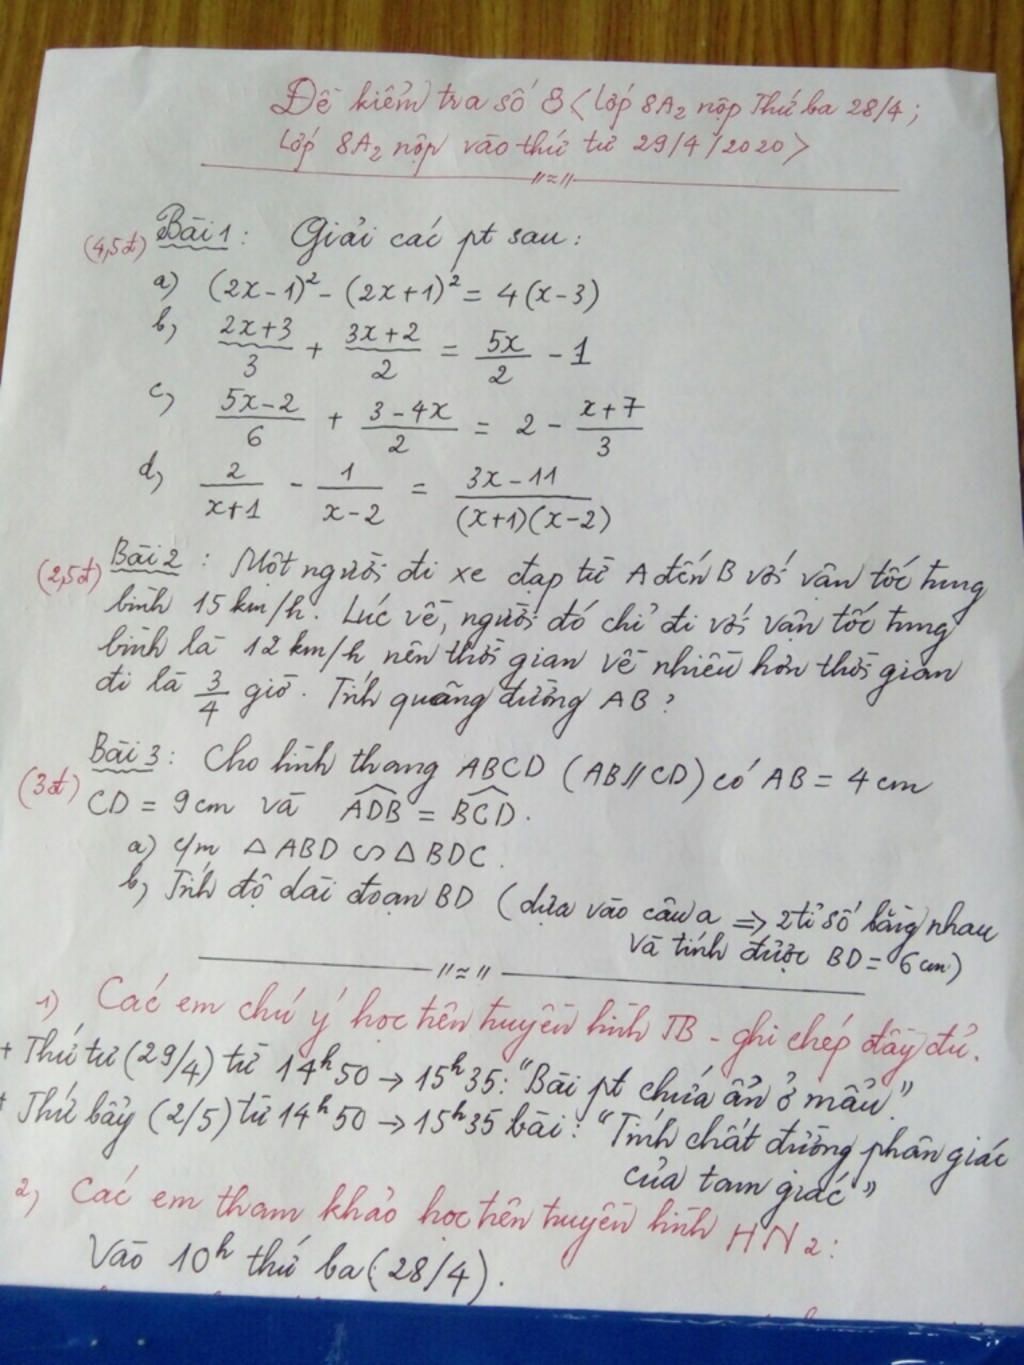 Đề kiểm tra số 8 < Lớp 8A2 nộp Thứ ba 28/4;
Lớp 8A2 nộp vào thứ tư 29/4/2020>
(4,5đ) Bài 1: Giải các pt sau:
a) (2x-1)² - (2x+1)² = 4(x-3)
b, (2x+3)/3 + (3x+2)/2 = 5x/2 - 1
c, (5x-2)/6 + (3-4x)/2 = 2 - (x+7)/3
d, 2/(x+1) - 1/(x-2) = (3x-11)/((x+1)(x-2))
(2,5đ) Bài 2: Một người đi xe đạp từ A đến B với vận tốc trung
bình 15 km/h. Lúc về, người đó chỉ đi với vận tốc trung
bình là 12 km/h nên thời gian về nhiều hơn thời gian
đi là 3/4 giờ. Tính quãng đường AB?
(3đ) Bài 3: Cho hình thang ABCD (AB//CD) có AB = 4 cm
CD = 9 cm và ADB = BCD.
a) c/m △ABD ∽ △BDC.
b, Tính độ dài đoạn BD (dựa vào câu a ⇒ 2 tỉ số bằng nhau
và tính được BD = 6 cm)
1) Các em chú ý học trên truyền hình TB - ghi chép đầy đủ.
+ Thứ tư (29/4) từ 14h50 → 15h35: "Bài pt chứa ẩn ở mẫu."
+ Thứ bảy (2/5) từ 14h50 → 15h35 bài: "Tính chất đường phân giác
của tam giác"
2, Các em tham khảo học trên truyền hình HN2:
Vào 10h thứ ba (28/4).